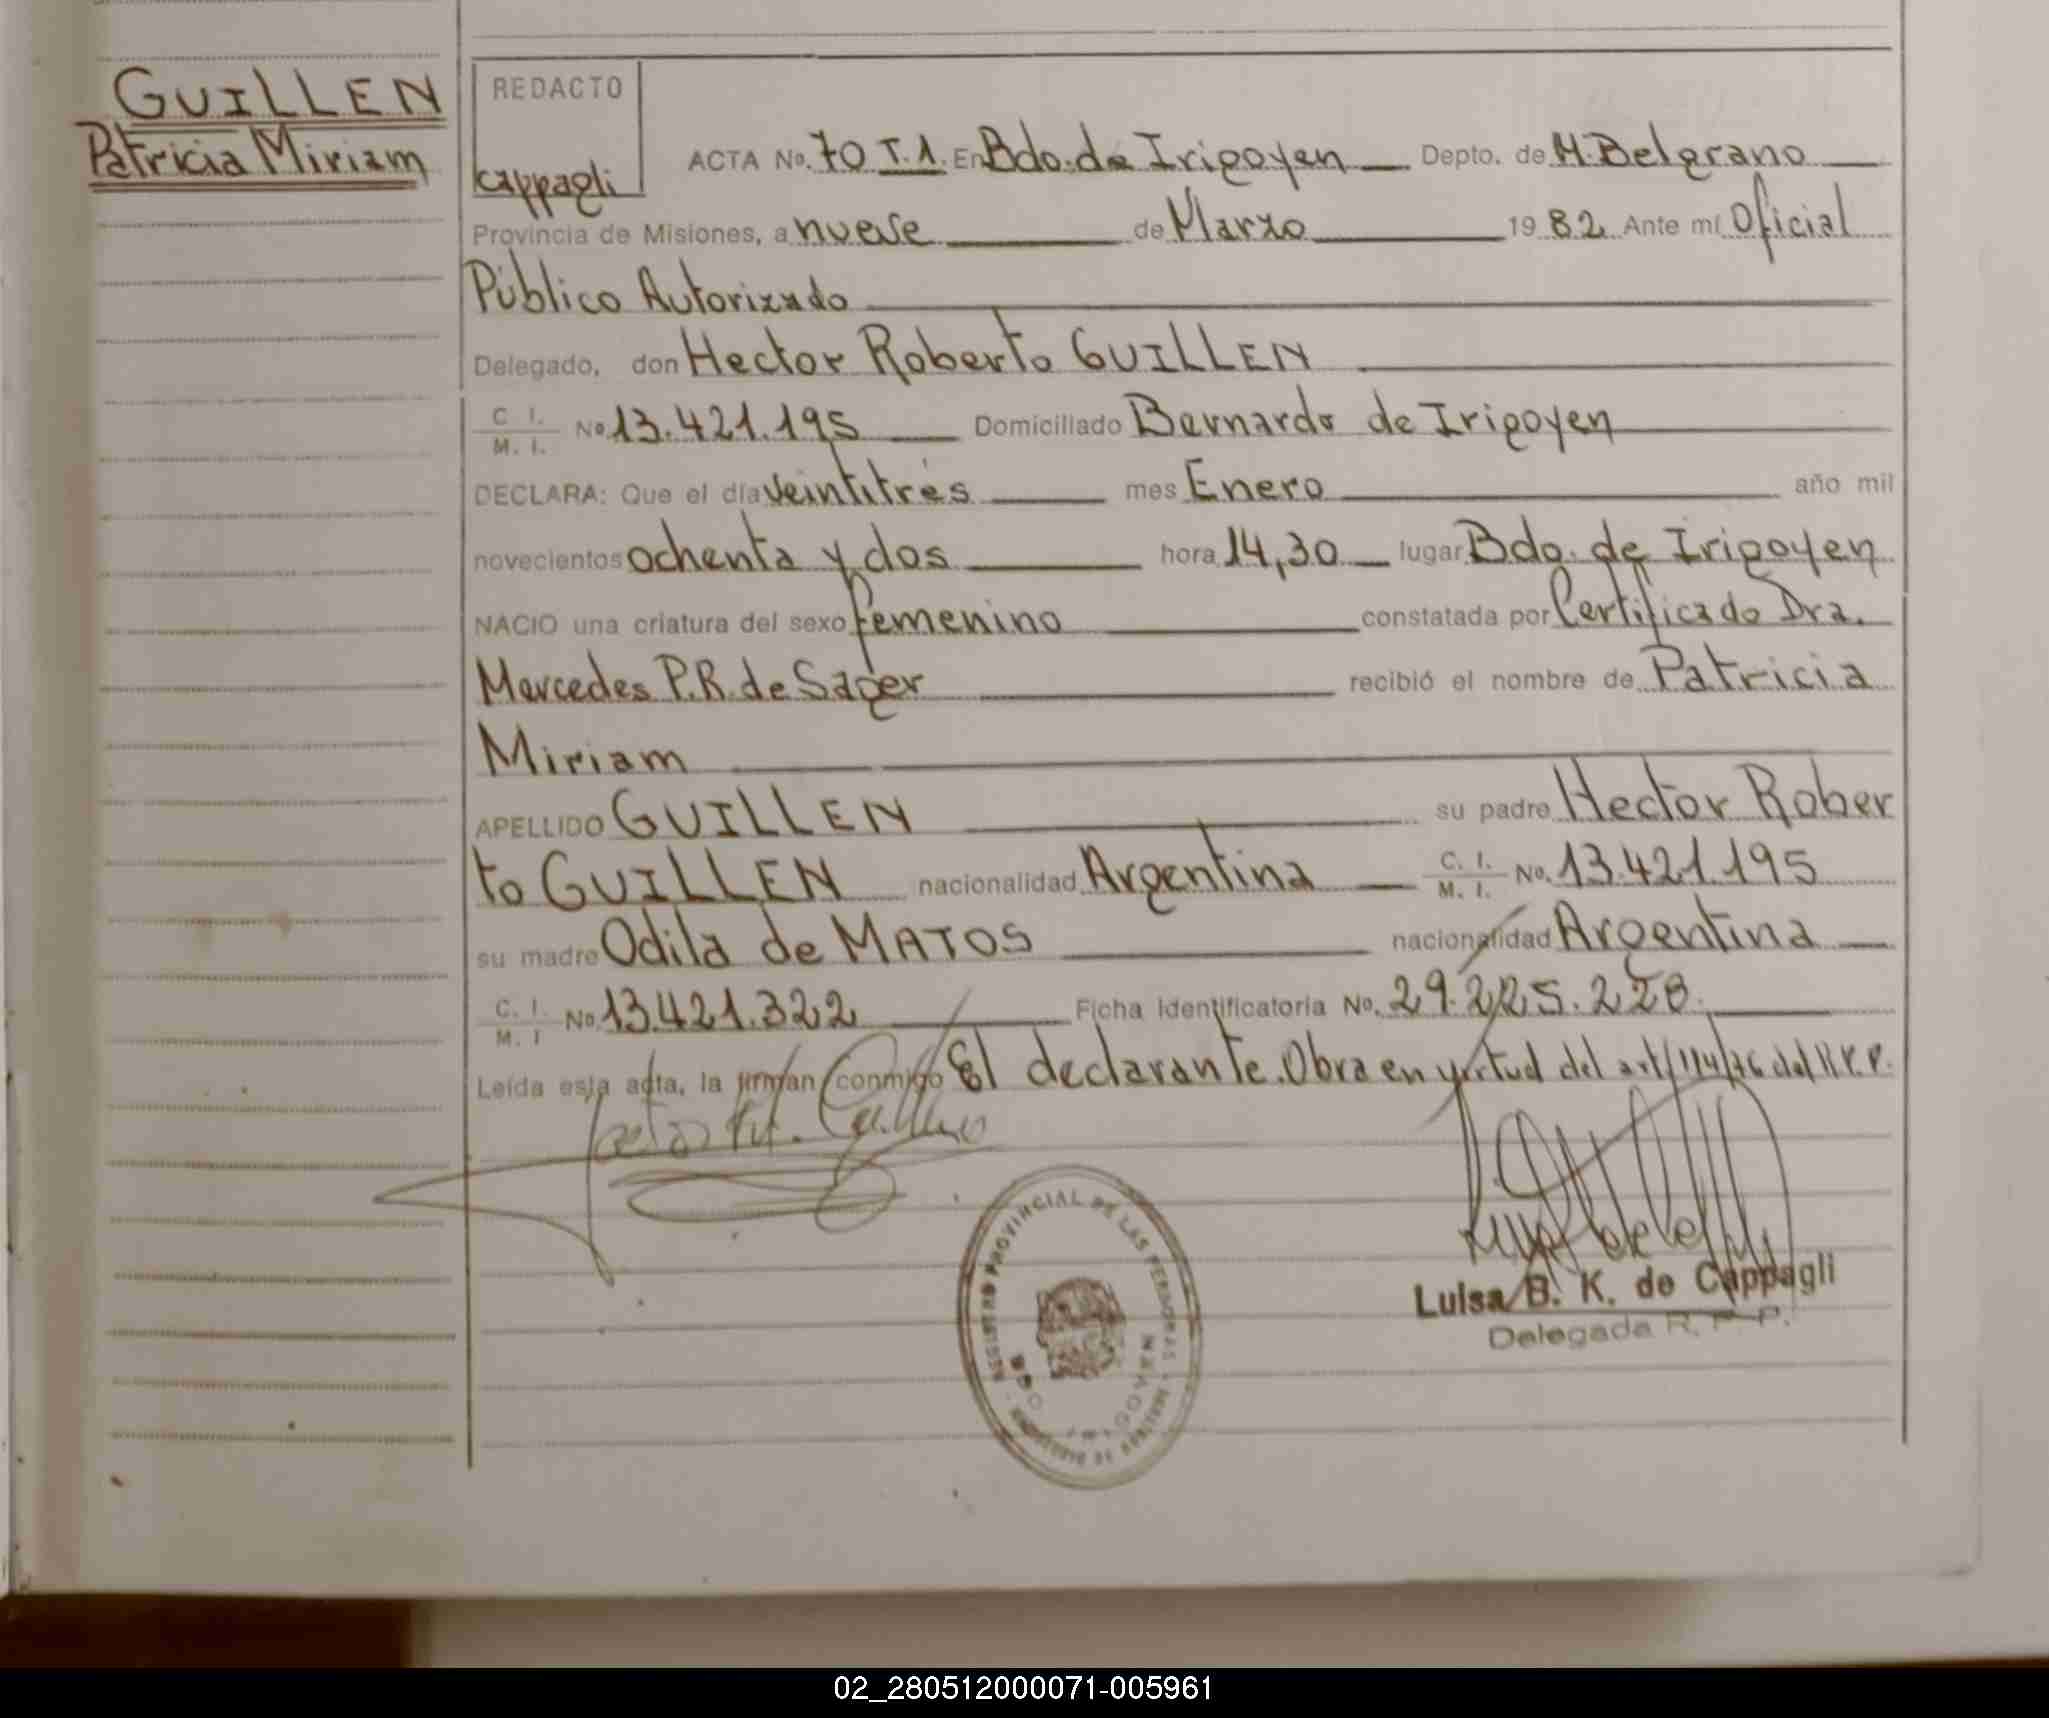 GUILLEN
Patricia Miriam
REDACTO
Cappagli
ACTA No. 70 T.1. En Bdo. de Irigoyen Depto. de M. Belgrano
Provincia de Misiones, a nueve de Marzo 1982 Ante mí Oficial
Público Autorizado
Delegado, don Hector Roberto GUILLEN
C. I. / M. I. No 13.421.195 Domiciliado Bernardo de Irigoyen
DECLARA: Que el día veintitrés mes Enero año mil
novecientos ochenta y dos hora 14,30 lugar Bdo. de Irigoyen
NACIO una criatura del sexo femenino constatada por Certificado Dra.
Mercedes P.R. de Sager recibió el nombre de Patricia
Miriam
APELLIDO GUILLEN su padre Hector Rober
to GUILLEN nacionalidad Argentina C. I. / M. I. No. 13.421.195
su madre Odila de MATOS nacionalidad Argentina
C. I. / M. I No 13.421.322 Ficha Identificatoria No. 29.225.228.
Leída esta acta, la firman conmigo El declarante. Obra en virtud del art/114/76 del R.P.P.
REGISTRO PROVINCIAL DE LAS PERSONAS
BDO IRIGOYEN
Luisa B. K. de Cappagli
Delegada R. P. P.
02_280512000071-005961